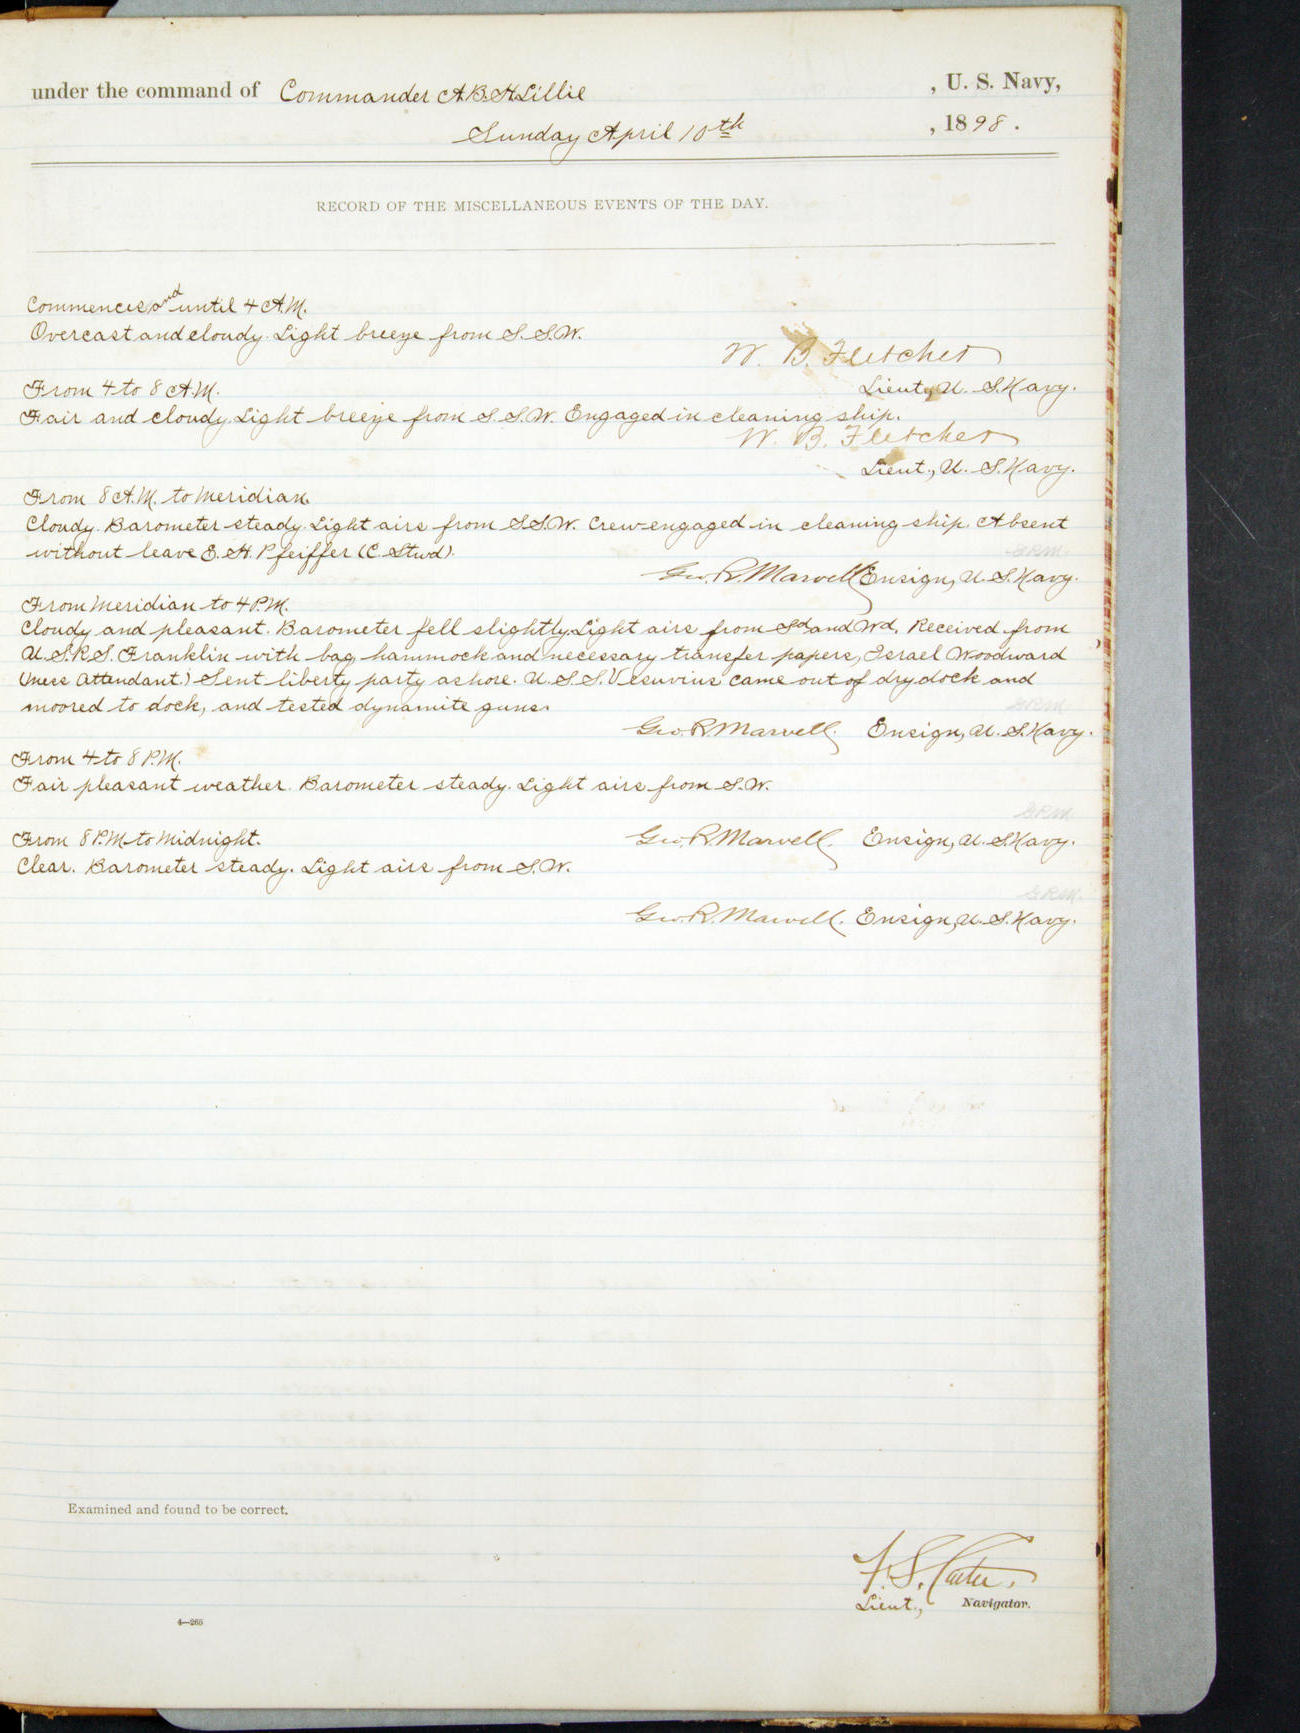 under the command of Commander A.B.H. Lillie , U. S. Navy,
Sunday April 10th , 1898.
RECORD OF THE MISCELLANEOUS EVENTS OF THE DAY.
Commences and until 4 A.M.
Overcast and cloudy. Light breeze from S.S.W.
W. B. Fletcher
Lieut., U. S. Navy.
From 4 to 8 A.M.
Fair and cloudy. Light breeze from S.S.W. Engaged in cleaning ship.
W. B. Fletcher
Lieut., U. S. Navy.
From 8 A.M. to Meridian.
Cloudy. Barometer steady. Light airs from S.S.W. Crew engaged in cleaning ship. Absent
without leave E. H. Pfeiffer (C. Stwd).
G.R.M.
Geo. R. Marvell Ensign, U. S. Navy.
From Meridian to 4 P.M.
Cloudy and pleasant. Barometer fell slightly. Light airs from Sd and Wd. Received from
U.S.R.S. Franklin with bag, hammock and necessary transfer papers, Israel Woodward
(Mess Attendant) Sent liberty party ashore. U.S.S. Vesuvius came out of dry dock and
moored to dock, and tested dynamite guns.
G.R.M.
Geo. R. Marvell. Ensign, U. S. Navy.
From 4 to 8 P.M.
Fair pleasant weather. Barometer steady. Light airs from S.W.
G.R.M.
Geo. R. Marvell. Ensign, U. S. Navy.
From 8 P.M. to Midnight.
Clear. Barometer steady. Light airs from S.W.
G.R.M.
Geo. R. Marvell. Ensign, U. S. Navy.
Examined and found to be correct.
F. S. Carter.
Lieut., Navigator.
4—265